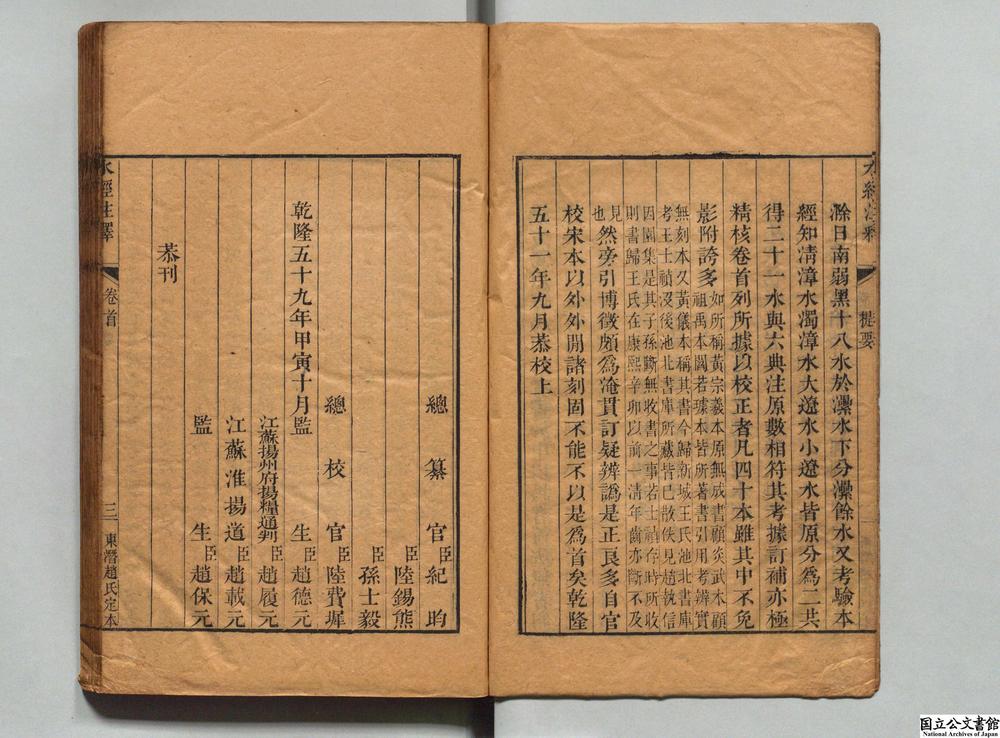 水經注釋
提要
滁日南弱黑十八水於㶟水下分㶟餘水又考驗本
經知淸漳水濁漳水大遼水小遼水皆原分爲二共
得二十一水與六典注原數相符其考據訂補亦極
精核卷首列所據以校正者凡四十本雖其中不免
影附誇多如所稱黃宗羲本原無成書顧炎武本顧
祖禹本閻若璩本皆所著書引用考辨實
無刻本又黃儀本稱其書今歸新城王氏池北書庫
考王士禎沒後池北書庫所藏皆已散佚見趙執信
因園集是其子孫斷無收書之事若士禎存時所收
則書歸王氏在康熙辛卯以前一淸年齒亦斷不及
見
也然旁引博徵頗爲淹貫訂疑辨譌是正良多自官
校宋本以外外閒諸刻固不能不以是爲首矣乾隆
五十一年九月恭校上
總纂官臣紀昀
臣陸錫熊
臣孫士毅
總校官臣陸費墀
乾隆五十九年甲寅十月監生臣趙德元
江蘇揚州府揚糧通判臣趙履元
江蘇淮揚道臣趙載元
監生臣趙保元
恭刊
水經注釋
卷首
三
東潛趙氏定本
国立公文書館
National Archives of Japan